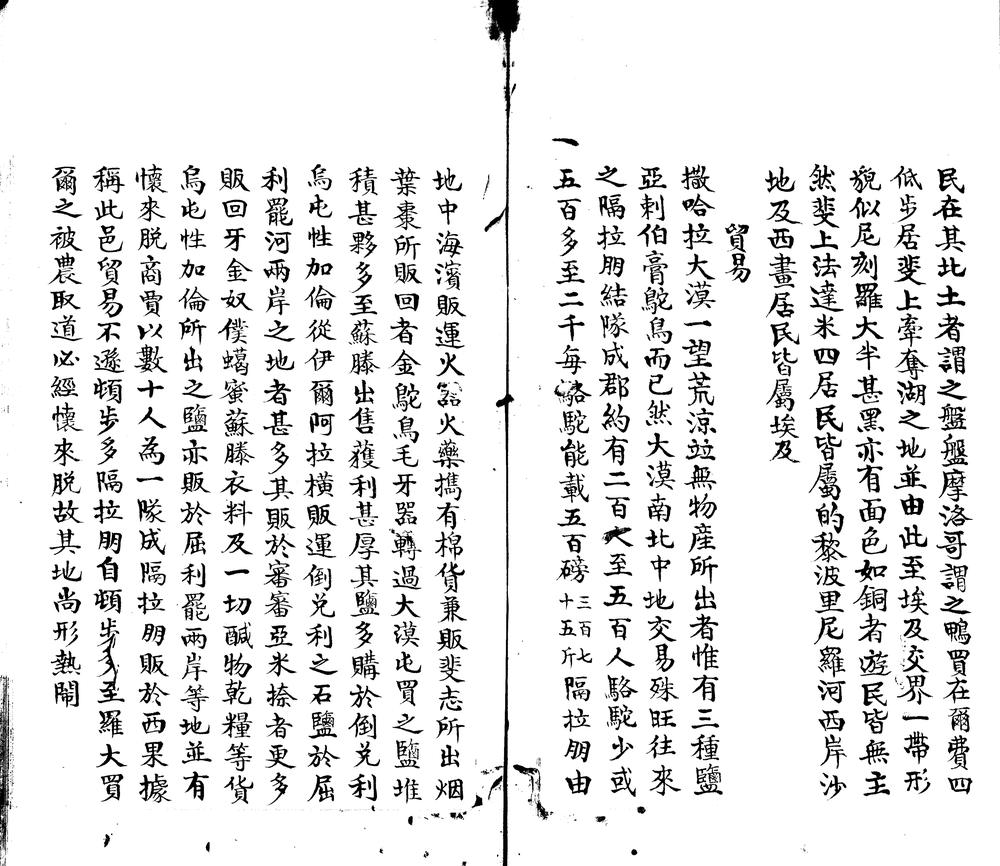 民在其北土者謂之盤盤摩洛哥謂之鴨買在爾費四
低步居斐上牽奪湖之地並由此至埃及交界一帶形
貌似尼刻羅大半甚黑亦有面色如銅者遊民皆無主
然斐上法達米四居民皆屬的黎波里尼羅河西岸沙
地及西畫居民皆屬埃及
貿易
撒哈拉大漠一望荒涼竝無物産所出者惟有三種鹽
亞剌伯膏鴕鳥而已然大漠南北中地交易殊旺往來
之隔拉朋結隊成郡約有二百人至五百人駱駝少或
一
五百多至二千每駱駝能載五百磅三百七十五斤隔拉朋由
地中海濱販運火器火藥攜有棉貨兼販斐志所出烟
葉棗所販回者金鴕鳥毛牙器轉過大漠屯買之鹽堆
積甚夥多至蘇滕出售獲利甚厚其鹽多購於倒兌利
烏屯性加倫從伊爾阿拉橫販運倒兌利之石鹽於屈
利罷河兩岸之地者甚多其販於審審亞米捺者更多
販回牙金奴僕蠟蜜蘇滕衣料及一切醎物乾糧等貨
烏屯性加倫所出之鹽亦販於屈利罷兩岸等地並有
懷來脱商賈以數十人為一隊成隔拉朋販於西果據
稱此邑貿易不遜頓步多隔拉朋自頓步多至羅大買
爾之被農取道必經懷來脱故其地尚形熱鬧